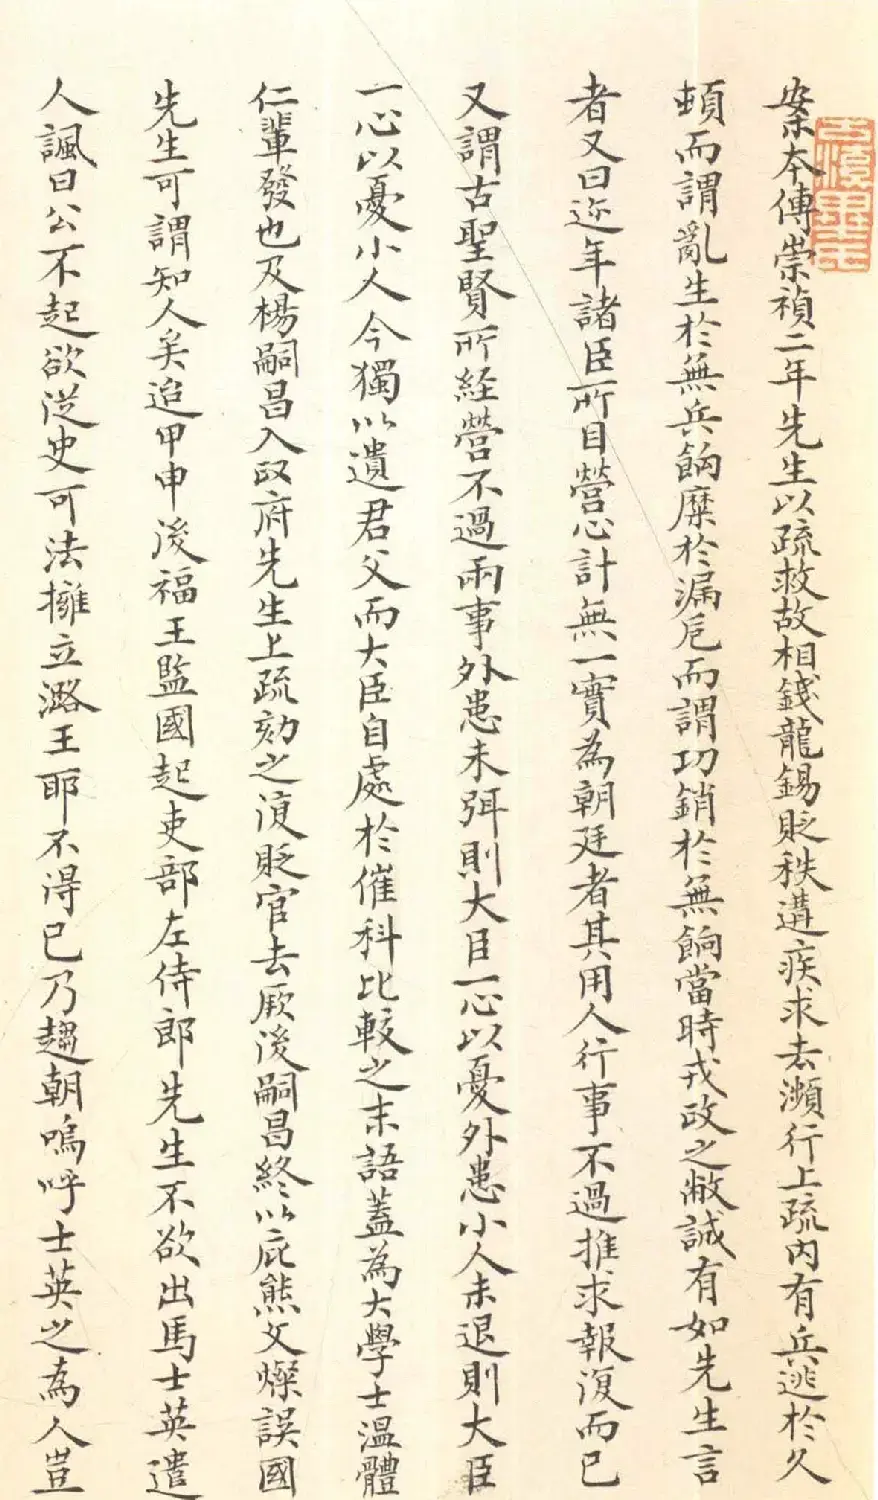 案本傳崇禎二年先生以疏救故相錢龍錫貶秩遘疾求去濒行上疏内有兵逃於久
頓而謂亂生於無兵餉糜於漏卮而謂功銷於無餉當時戎政之敝誠有如先生言
者又曰迩年諸臣所目營心計無一實為朝廷者其用人行事不過推求報復而已
又謂古聖賢所経營不過兩事外患未弭則大臣一心以憂外患小人未退則大臣
一心以憂小人今獨以遺君父而大臣自處於催科比較之末語蓋為大學士温體
仁輩發也及楊嗣昌入政府先生上疏劾之復貶官去厥後嗣昌終以庇熊文燦誤國
先生可謂知人矣迨甲申後福王監國起吏部左侍郎先生不欲出馬士英遣
人諷曰公不起欲従史可法擁立潞王耶不得已乃趨朝嗚呼士英之為人豈